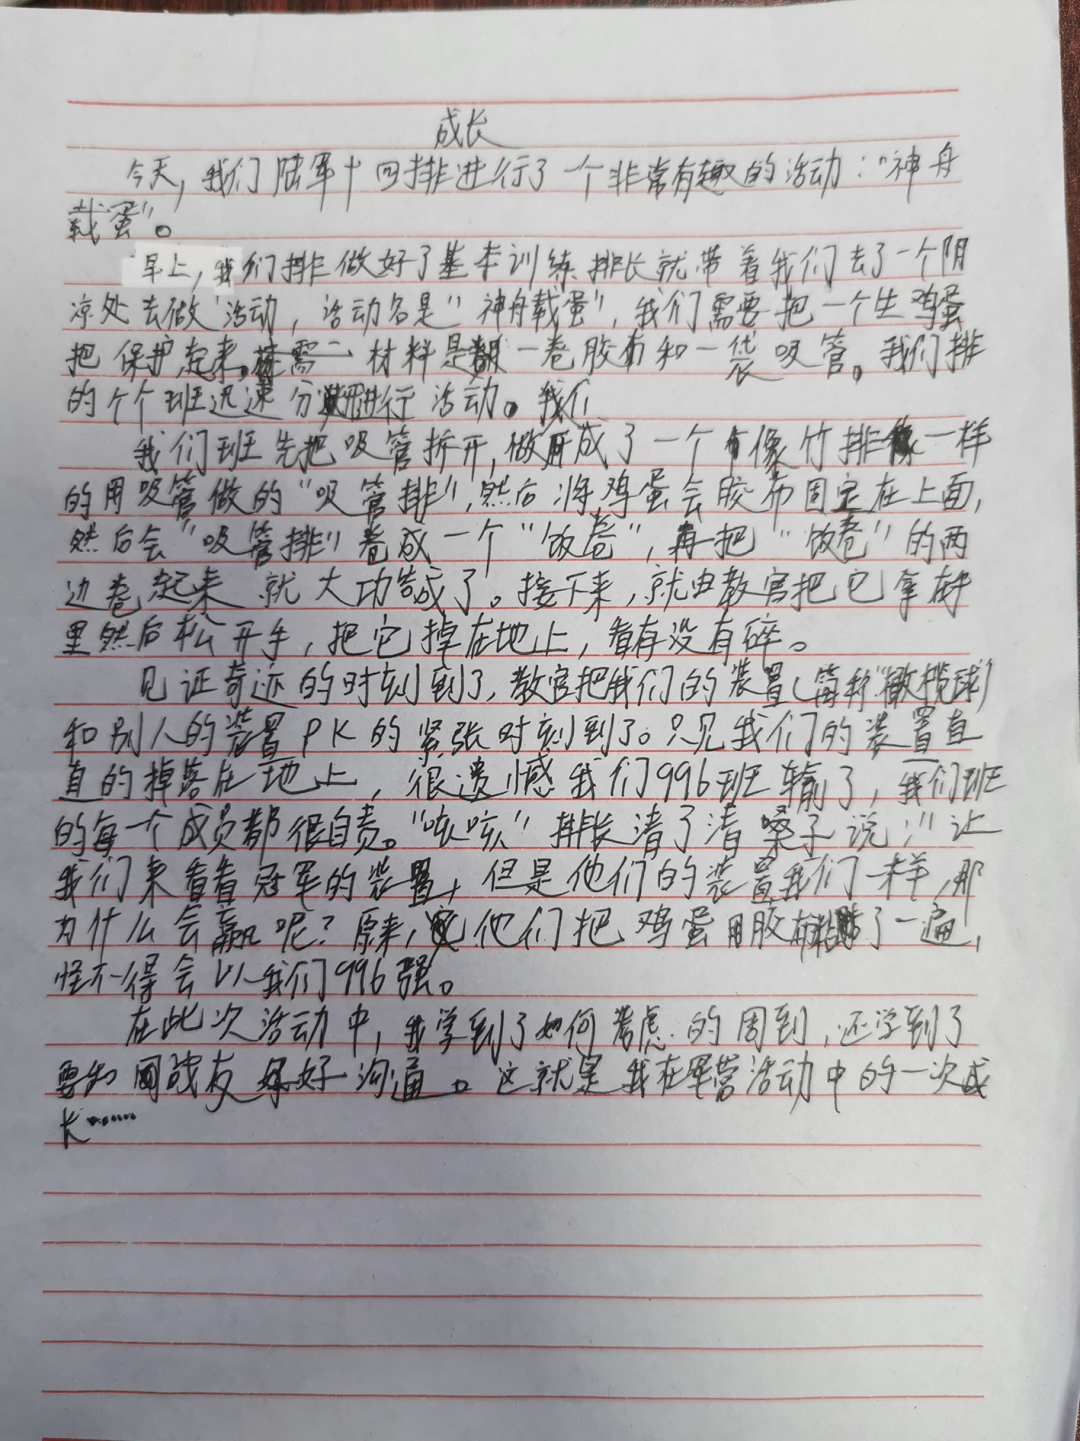 成长
今天，我们陆军十四排进行了一个非常有趣的活动："神舟
载蛋"。
早上，我们排做好了基本训练排长就带着我们去了一个阴
凉处去做活动，活动名是"神舟载蛋"，我们需要把一个生鸡蛋
把保护起来。需 材料是 一卷胶布和一袋吸管。我们排
的个个班迅速分 进行活动。我们
我们班先把吸管拆开，做 成了一个 像竹排 一样
的用吸管做的"吸管排"，然后将鸡蛋会胶布固定在上面，
然后会"吸管排"卷成一个"饭卷"，再把"饭卷"的两
边卷起来就大功告成了。接下来，就由教官把它拿在手
里然后松开手，把它掉在地上，看有没有碎。
见证奇迹的时刻到了，教官把我们的装置（简称"橄榄球"）
和别人的装置PK的紧张时刻到了。只见我们的装置直
直的掉落在地上，很遗憾我们996班输了，我们班
的每一个成员都很自责。"咳咳"排长清了清嗓子说："让
我们来看看冠军的装置，但是他们的装置我们一样，那
为什么会赢呢？原来， 他们把鸡蛋用胶布粘了一遍，
怪不得会以我们996强。
在此次活动中，我学到了如何考虑的周到，还学到了
要和 战友 好沟通。这就是我在军营活动中的一次成
长……